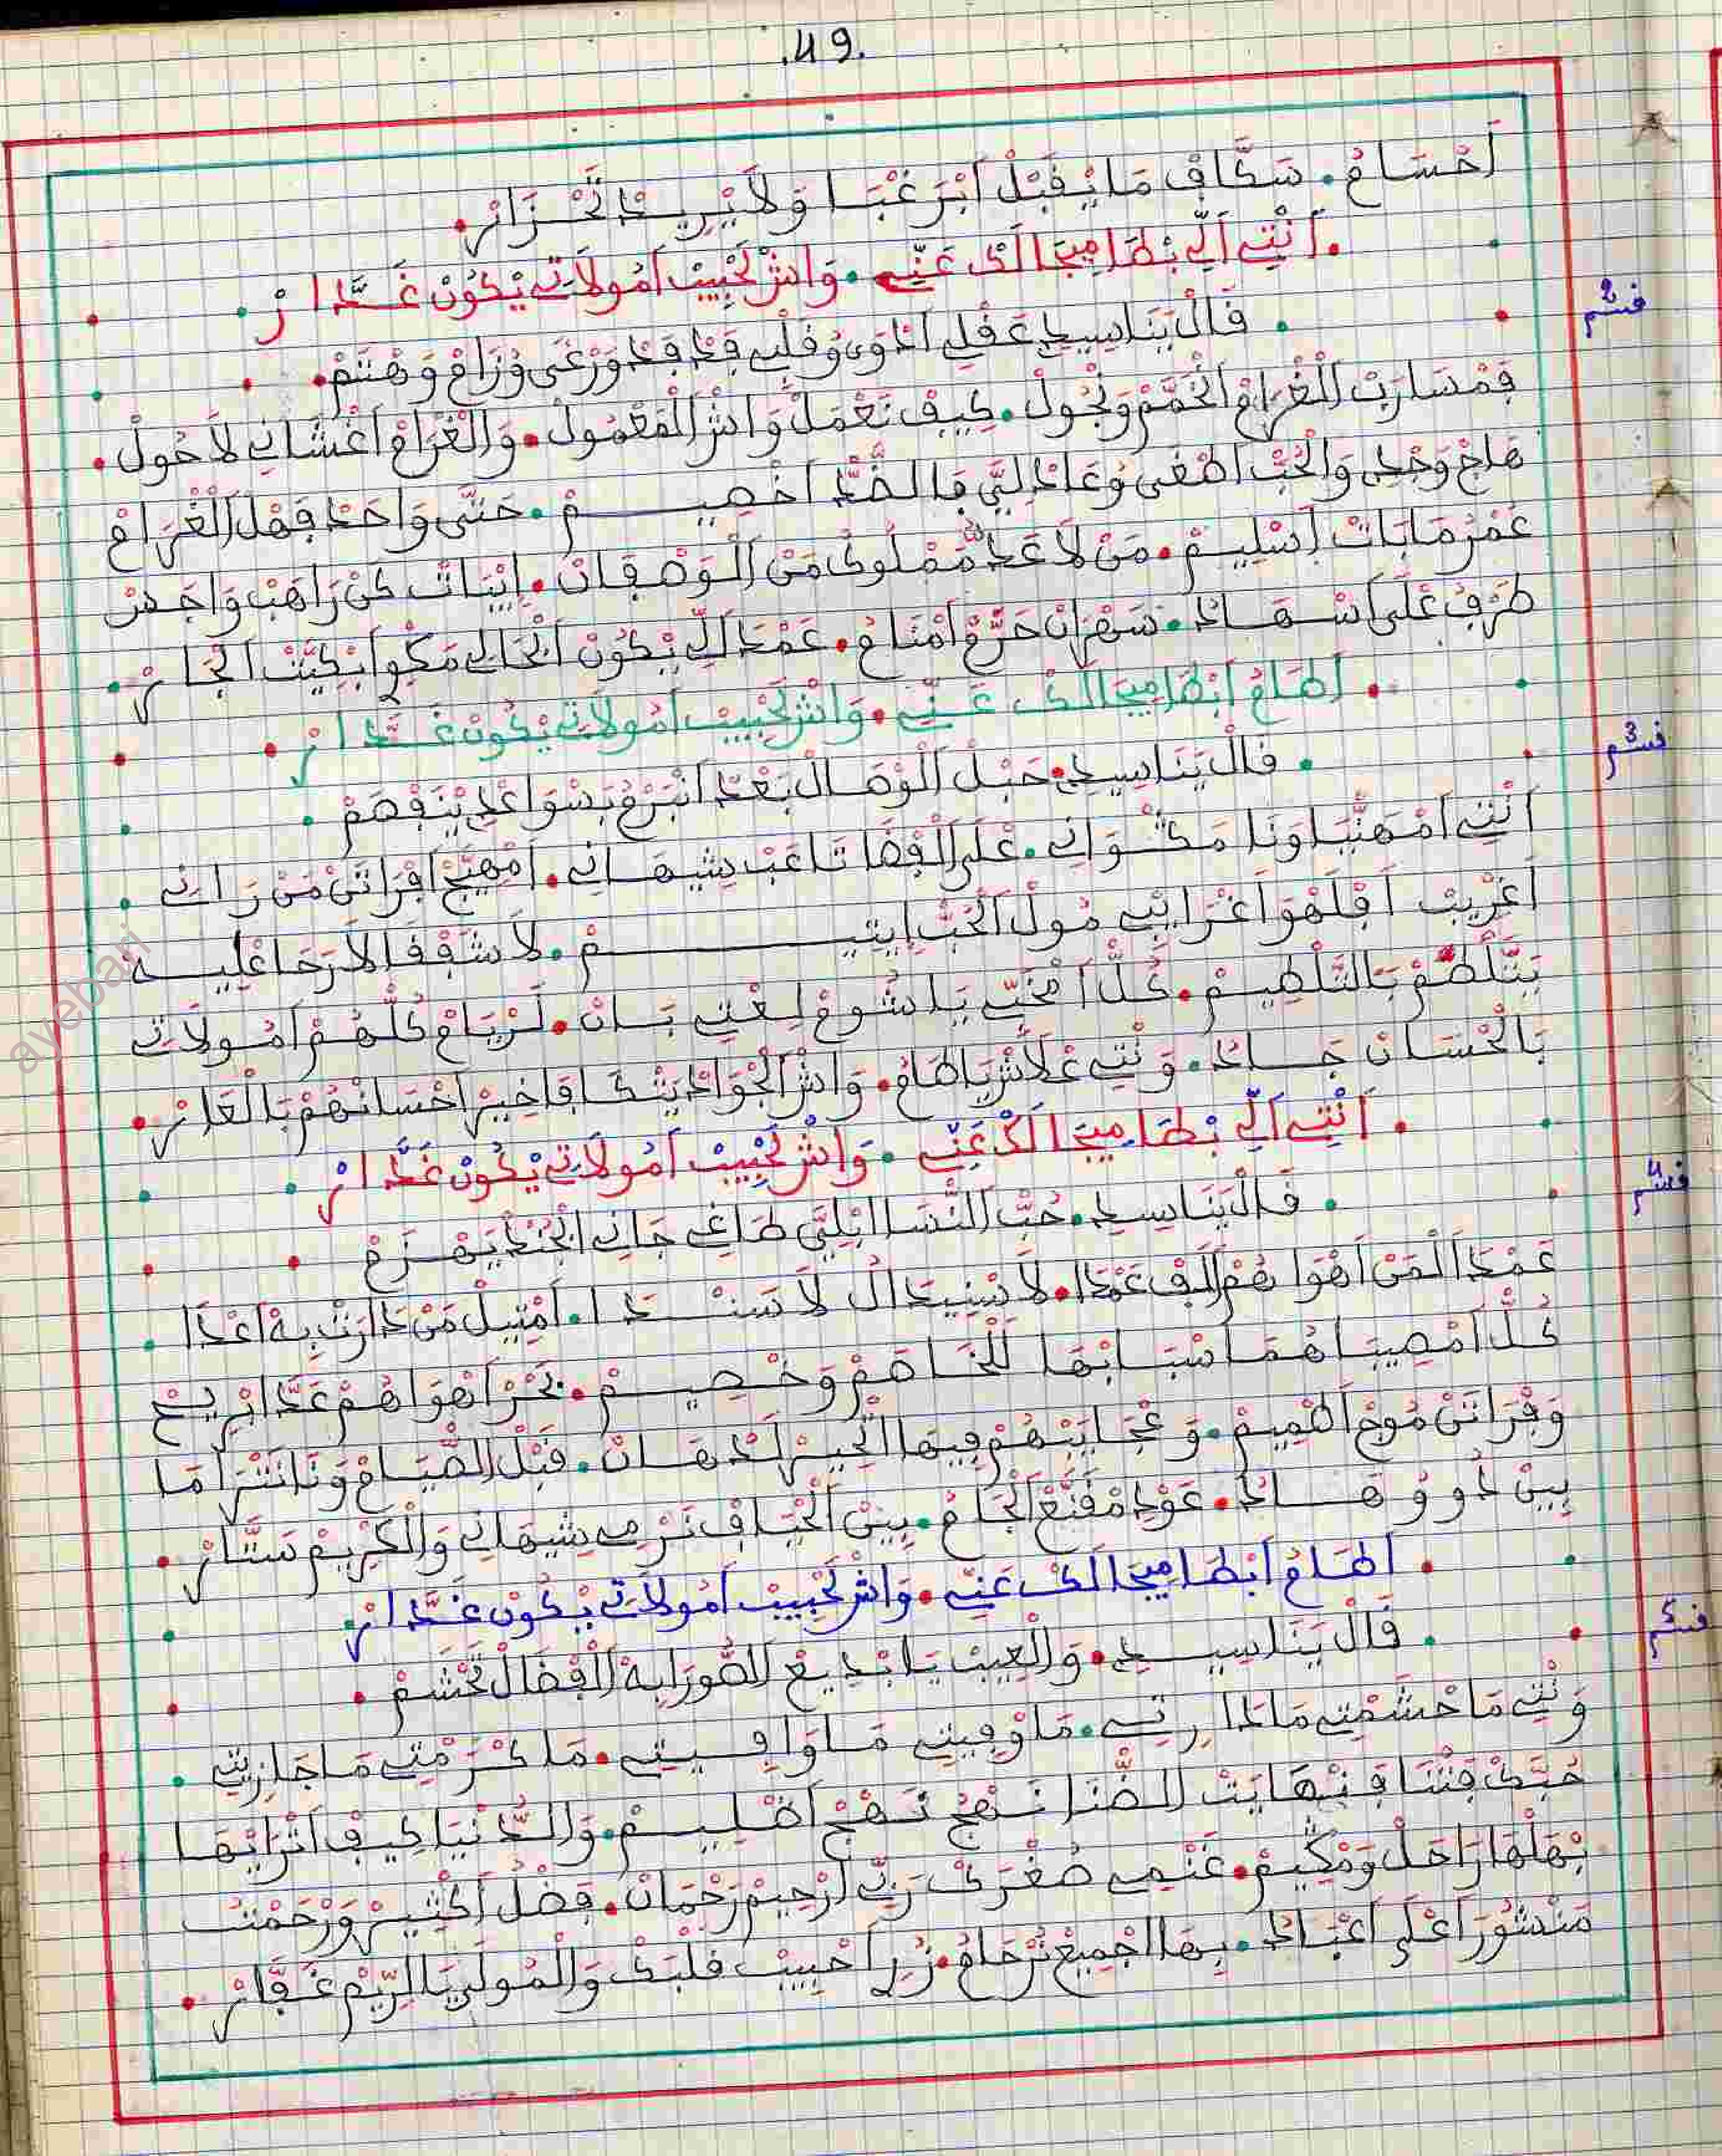 .49.
أَحْسَامُ. سَكَّافْ مَا يْفَبْلْ أَبْرَغْبَا وَلاَ يْرِيدْ تَحْزَازْ.
. أَنْتِ أَلِّ بْطَا مِيجَالَكْ عَنِّي. وَاشْ لَحْبِيبْ أَمُولاَتِي يْكُونْ غَدَّارْ
فسم 2
. فَالْ يَنَا سِيدِي عَفْلِي أَدْوَى وُفَلْبِي فَدْ فَدْ وَرْغَى وُزَامْ وَهْتَمْ.
فِمْسَارَبْ الْغْرَامْ الْخَمَّمْ وَنْجُولْ. كِيفْ نَعْمَلْ وَاشْ الْمَعْمُولْ. وَالْغْرَامْ أَغْشَانِي لاَ حُولْ.
هَاجْ وَجْدِي وَالْحُبّْ اطْغَى وُعَادْ لِيَّ فَالضَّدّْ أَخْصِيمْ. حَتَّى وَاحَدْ فَهْلْ الْغْرَامْ
عَمْرُ مَا بَاتْ اسْلِيمْ. مَنْ لاَ عَدُّ مَمْلُوكْ مَنْ الْوَصْفَانْ. اِبَاتْ كَنْ رَاهَبْ وَاجَفنْ
طَرْفُ عْلَى اسْهَادْ. سَهْرَانْ حَرّْمْ أَمْنَامُ. عَمْدَ أَلِّي يْكُونْ الْحَالِي مَكْوِي أَبْكِيَّتْ الْجَارْ.
. أَطَامُ أَبْطَا مِيجَالَكْ عَنِّي. وَاشْ لَحْبِيبْ أَمُولاَتِي يْكُونْ غَدَّارْ
فسم 3
. فَالْ يَنَا سِيدِي. حَبْلْ الْوْصَالْ بَعْدْ أَنْبَرْمُ بَسْوَاعْدِي يْنَفْصَمْ.
أَنْتِي أَمْهَنْيَا وَنَا مَكْوَانِي. عْلَى الْفْضَا تَاعَبْ شِيهَانِي. أَمْهِيَّجْ أَفْرَاتَنْ مَنْ رَانِي.
أَغْرِيبْ أَفْلَهْوَا غْرَايْبِي مُولْ الْحُبّْ ايْتِيمْ. لاَ شَفْفَا لاَ رَحَا عْلِيهْ
يَتّْلْطَمْ بَالتَّلْطِيمْ. كُلّْ أَمْحَبّْ يَا شُومْ لِعْتِي بَانْ. لَرْيَامْ كُلّْهُمْ أَمُولاَتِي
بَالْحْسَانْ جَادْ. وَنْتِي عْلاَشْ يَا طَامُ. وَاشْ الْجْوَادْ يَتْكَافَا خِيرْ أَحْسَانْهُمْ بَالْعَارْ.
. أَنْتِي أَلِّ بْطَا مِيجَالَكْ عَنِّي. وَاشْ لَحْبِيبْ أَمُولاَتِي يْكُونْ غَدَّارْ
فسم 4
. فَالْ يَنَا سِيدِي. حُبّْ النّْسَا ابْلِيَّى طَاغِي جَانِي ابْجُنْدْ يَهْزَمْ
عَمْدَ أَلْمَنْ أَهْوَاهُمْ أَلَبْفْ عَمْدَا. لاَ سْنِيدَ الْ لاَ سَنْدَا. أَمْتِيلْ مَنْ دَارَتْ بِهْ أعْدَا.
كُلّْ أَمْصِيبَا هُمَا سْبَابْهَا لَلْخَاصَمْ وَخْصِيمْ. بَحْرْ أَهْوَاهُمْ عَدَّا بْرِيحْ
وَفْرَاتَنْ مُوجْ أَطْمِيمْ. وَعْجَايَبْهُمْ فِيهَا اتّْحِيرْ لَدْهَانْ. فَبْلْ الصّْيَامْ وَنَا نَتْرَامَا
بِينْ دُو وُ هَادْ. عَوْدِي مْفَنَّعْ الْجَامُ. بِينْ الْحْيَافْ نَرْمِي شِيهَانِي وَالْكْرِيمْ سَتَّارْ.
. أَطَامُ أَبْطَا مِيجَالَكْ عَنِّي. وَاشْ لَحْبِيبْ أَمُولاَتِي يْكُونْ غَدَّارْ
فسم 5
. فَالْ يَنَا سِيدِي. وَالْعِيبْ يَا بْدِيعْ الصُّورَا بِهْ الْفْضَالْ تَحْشَمْ.
وَنْتِي مَا حْشَمْتِي مَادَارِتِي. مَا وْفِيتِي مَا وَافِيتِي. مَا كْرَمْتِي مَا جَازِيتِي.
حُبَّكْ فِتْنَا فَنْهَايَتْ الضّْنَا نَهْجْ أَظْلِيمْ. وَالدُّنْيَا كِيفْ أَتْرَايْهَا
بْهَلْهَا رَاحَلْ وَمْكِيمْ. غَنْمِي صُغْرَكْ رَبِّي أَرْحِيمْ رَحْمَانْ. فَضْلُ أَكْثِيرْ وَرْحَمْتُ
مَنْشُورَ أَعْلَى أَعْبَادُ. بِهَا الْجْمِيعْ تَرْحَامُ. زُرِي أَحْبِيبْ فَلْبَكْ وَالْمُولَى يَا الرِّيمْ غَفَّارْ.
ayebari